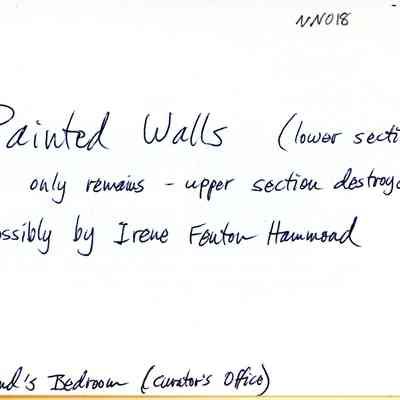 NN018
Painted Walls (lower secti
only remains - upper section destroy
ossibly by Irene Fenton Hammond
nd's Bedroom (curator's Office)